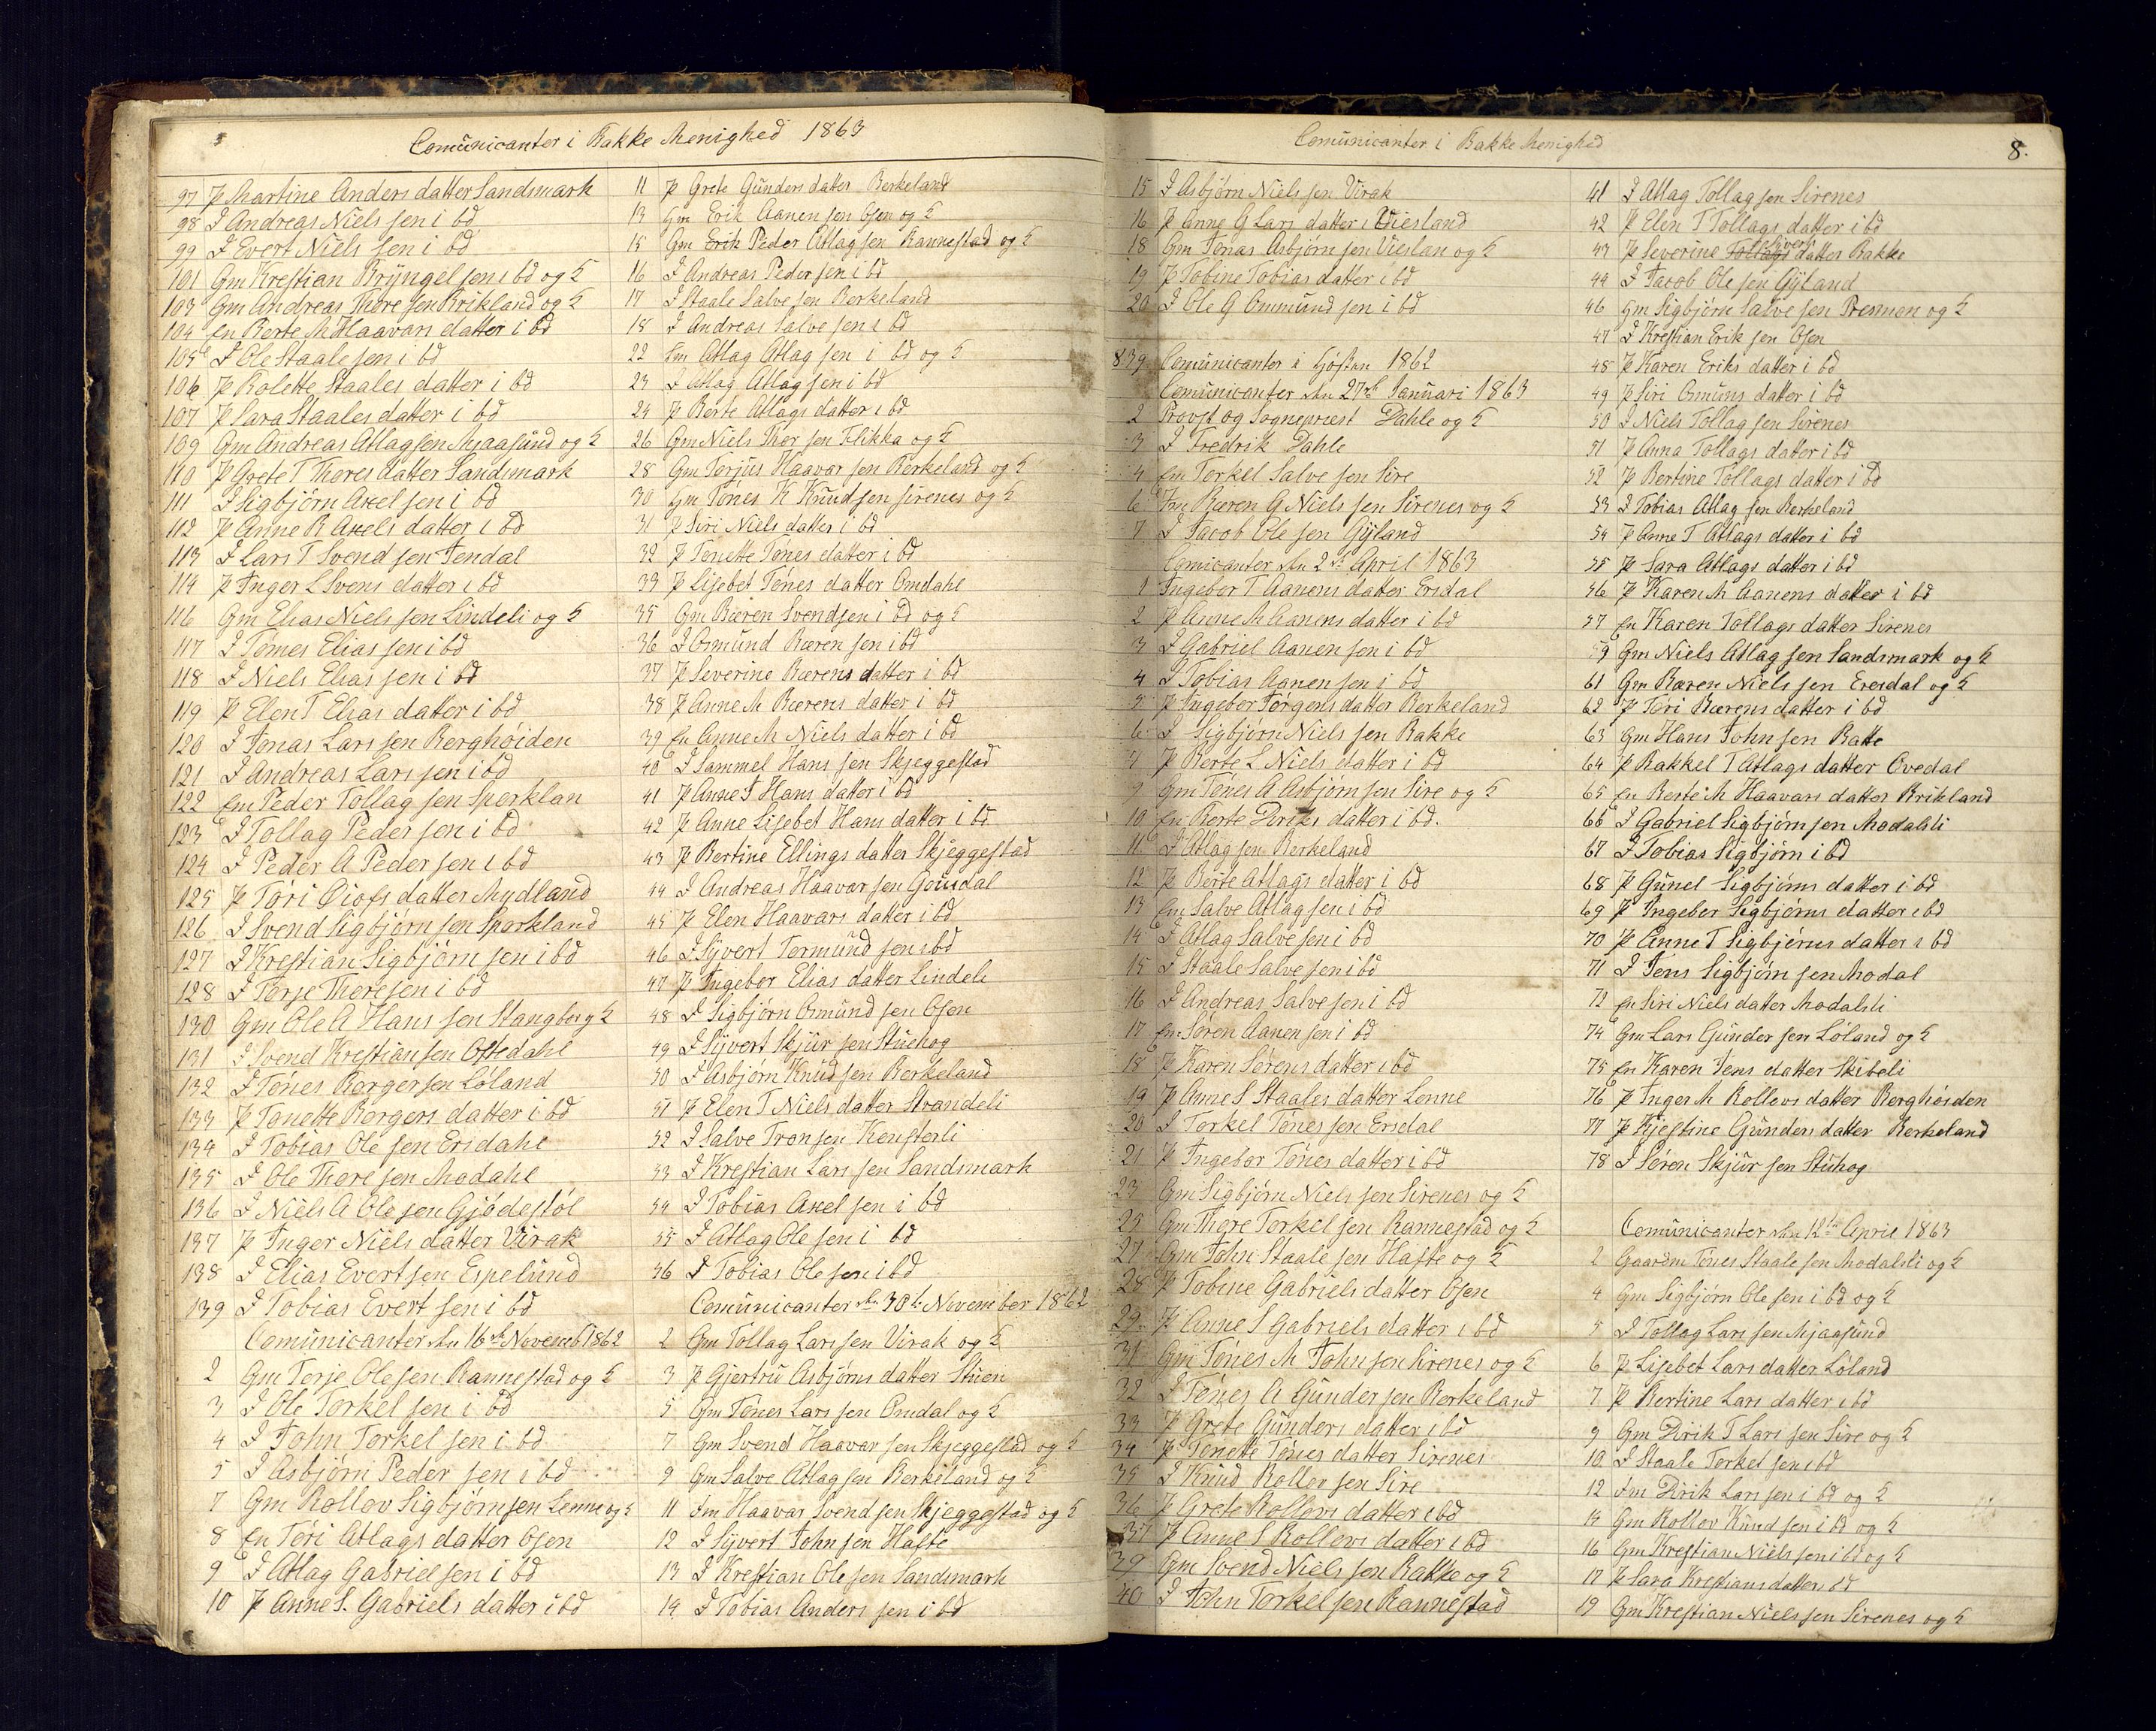 Comunicanter i Bakke Menighed 1863
97 P Martine Anders datter Sandsmark
98 J Andreas Niels sen i bd
99 J Evert Niels sen i bd
101 Gm Krestian Bryngel sen i bd og K
103 Gm Andreas Thore sen Brikland og K
104 En Berte M Haavars datter i bd
105 J Ole Staale sen i bd
106 P Rolette Staales datter i bd
107 P Sara Staales datter i bd
109 Gm Andreas Atlag sen Mjaasund og K
110 P Grete T Thores datter Sandsmark
111 J Sigbjörn Axel sen i bd
112 P Anne R Axels datter i bd
113 J Lars T Svend sen Jendal
114 P Inger L Svens datter i bd
116 Gm Elias Niels sen Lindeli og K
117 J Tönnes Elias sen i bd
118 J Niels Elias sen i bd
119 P Elen T Elias datter i bd
120 J Jonas Lars sen Berghöiden
121 J Andreas Lars sen i bd
122 Em Peder Tollag sen Sporklan
123 J Tollag Peder sen i bd
124 J Peder A Peder sen i bd
125 P Töri Öiofs datter Mydland
126 J Svend Sigbjörn sen Sporkland
127 J Krestian Sigbjörn sen i bd
128 J Torje Thore sen i bd
130 Gm Ole A Hans sen Stangberg K
131 J Svend Krestian sen Oftedahl
132 J Tönes Borger sen Löland
133 P Tonette Borgers datter i bd
134 J Tobias Ole sen Ersdahl
135 J Ole Thore sen Modahl
136 J Niels A Ole sen Gjödestöl
137 P Inger Niels datter Virak
138 J Elias Evert sen Espelund
139 J Tobias Evert sen i bd
Comunicanter den 16de Novemb 1862
2 Gm Terje Ole sen Rannestad og K
3 J Ole Torkel sen i bd
4 J John Torkel sen i bd
5 J Asbjörn Peder sen i bd
7 Gm Rollov Sigbjörn sen Lenne og K
8 En Töri Atlags datter Osen
9 J Atlag Gabriel sen i bd
10 P Anne S. Gabriels datter i bd
11 P Grete Gunders datter Berkeland
13 Gm Erik Aanen sen Osen og K
15 Gm Erik Peder Atlag sen Rannestad og K
16 J Andreas Peder sen i bd
17 J Staale Salve sen Berkeland
18 J Andreas Salve sen i bd
22 Em Atlag Atlag sen i bd og K
23 J Atlag Atlag sen i bd
24 P Berte Atlags datter i bd
26 Gm Niels Thor sen Flikka og K
28 Gm Torjus Haavar sen Berkeland og K
30 Gm Tönes K Knud sen Sirenes og K
31 P Siri Niels datter i bd
32 P Tonette Tönes datter i bd
33 P Lisebet Tönes datter Omdahl
35 Gm Bæren Svendsen i bd og K
36 J Osmund Bæren sen i bd
37 P Severine Bærens datter i bd
38 P Anne M Bærens datter i bd
39 En Anne M Niels datter i bd
40 J Sammel Hans sen Skjeggestad
41 P Anne T Hans datter i bd
42 P Anne Lisebet Hans datter i bd
43 P Bertine Ellings datter Skjeggestad
44 J Andreas Haavar sen Gousdal
45 P Elen Haavars datter i bd
46 J Syvert Tormund sen i bd
47 P Ingebor Elias datter Lindeli
48 J Sigbjörn Osmund sen Osen
49 J Syvert Skjur sen Stuehog
50 J Asbjorn Knud sen Berkeland
51 P Elen T Niels datter Strandeli
52 J Salve Tron sen Kensterli
53 J Krestian Lars sen Sandsmark
54 J Tobias Axel sen i bd
55 J Atlag Ole sen i bd
56 J Tobias Ole sen i bd
Comunicanter den 30te November 1862
2 Gm Tollag Lars sen Virak og K
3 P Gjertru Asbjörns datter Stuen
5 Gm Tönes Lars sen Omdal og K
7 Gm Svend Haavar sen Skjeggestad og K
9 Gm Salve Atlag sen Berkeland og K
11 Em Haavar Svend sen Skjeggestad og K
12 J Syvert John sen Hafte
13 J Krestian Ole sen Sandsmark
14 J Tobias Anders sen i bd
Comunicanter i Bakke Menighed
8.
15 J Asbjörn Niels sen Virak
16 P Anne G Lars datter i Viesland
18 Gm Jonas Asbjörn sen Vieslan og K
19 P Tobine Tobias datter i bd
20 J Ole G Ommund sen i bd
839 Comunicanter i Höstan 1862
Comunicanter den 27de Januari 1863
2 Provst og Sognepriest Dahle og K
3 J Fredrik Dahle
4 Em Torkel Salve sen Sire
6 Em Bæren G Niels sen Sirenes og K
7 J Jacob Ole sen Gyland
Comicanter den 2de April 1863
1 Ingebor T Aanens datter Ersdal
2 P Anne M Aanens datter i bd
3 J Gabriel Aanen sen i bd
4 J Tobias Aanen sen i bd
5 P Ingebor Jörgens datter Berkeland
6 J Sigbjörn Niels sen Bakke
7 P Berte L Niels datter i bd
9 Gm Tönes A Asbjörn sen Sire og K
10 En Berte Diriks datter i bd.
11 J Atlag sen Berkeland
12 P Berte Atlags datter i bd
13 Em Salve Atlag sen i bd
14 J Atlag Salve sen i bd
15 J Staale Salve sen i bd
16 J Andreas Salve sen i bd
17 Em Sören Aanen sen i bd
18 P Karen Sörens datter i bd
19 P Anne S Staales datter Lenne
20 J Torkel Tönes sen Ersdal
21 P Ingebor Tönes datter i bd
23 Gm Sigbjörn Niels sen Sirenes og K
25 Gm Thore Torkel sen Rannestad og K
27 Gm John Staale sen Hafte og K
28 P Tobine Gabriels datter Osen
29 P Anne S Gabriels datter i bd
31 Gm Tönes M John sen Sirenes og K
32 J Tönes A Gunder sen Berkeland
33 P Grete Gunders datter i bd
34 P Tonette Tönes datter Sirenes
35 J Knud Rollov sen Sire
36 P Grete Rollovs datter i bd
37 P Anne S Rollovs datter i bd
39 Gm Svend Niels sen Bakke og K
40 J John Torkel sen Rannestad
41 J Atlag Tollag sen Sirenes
42 P Elen T Tollags datter i bd
43 P Severine Tollags Syvers datter Bakke
44 J Jacob Ole sen Gyland
46 Gm Sigbjörn Salve sen Presmon og K
47 J Krestian Erik sen Osen
48 P Karen Eriks datter i bd
49 P Siri Osmuns datter i bd
50 J Niels Tollag sen Sirenes
51 P Anna Tollags datter i bd
52 P Bertine Tollags datter i bd
53 J Tobias Atlag sen Berkeland
54 P Anne T Atlags datter i bd
55 P Sara Atlags datter i bd
56 P Karen M Aanens datter i bd
57 En Karen Tollags datter Sirenes
59 Gm Niels Atlag sen Sandsmark og K
61 Gm Bæren Niels sen Eresdal og K
62 P Töri Bærens datter i bd
63 Gm Hans John sen Batte
64 P Rakkel T Atlags datter Ovedal
65 En Berte M Haavars datter Brikland
66 J Gabriel Sigbjörn sen Modalsli
67 J Tobias Sigbjörn i bd
68 P Gunel Sigbjörns datter i bd
69 P Ingebor Sigbjörns datter i bd
70 P Anne T Sigbjörns datter i bd
71 J Jens Sigbjörn sen Modal
72 En Siri Niels datter Modalsli
74 Gm Lars Gunder sen Löland og K
75 En Karen Jens datter Skibeli
76 P Inger M Rollovs datter Berghöiden
77 P Kjestine Gunders datter Berkeland
78 J Sören Skjur sen Stuhog
Comunicanter den 12te April 1863
2 Gaardm Tönes Staale sen Modalsli og K
4 Gm Sigbjörn Ole sen i bd og K
5 J Tollag Lars sen Mjaasund
6 P Lisebet Lars datter Löland
7 P Bertine Lars datter i bd
9 Gm Dirik T Lars sen Sire og K
10 J Staale Torkel sen i bd
12 Em Dirik Lars sen i bd og K
14 Gm Rollov Knud sen i bd og K
16 Gm Krestian Niels sen i bd og K
17 P Sara Krestians datter i bd
19 Gm Krestian Niels sen Sirenes og K